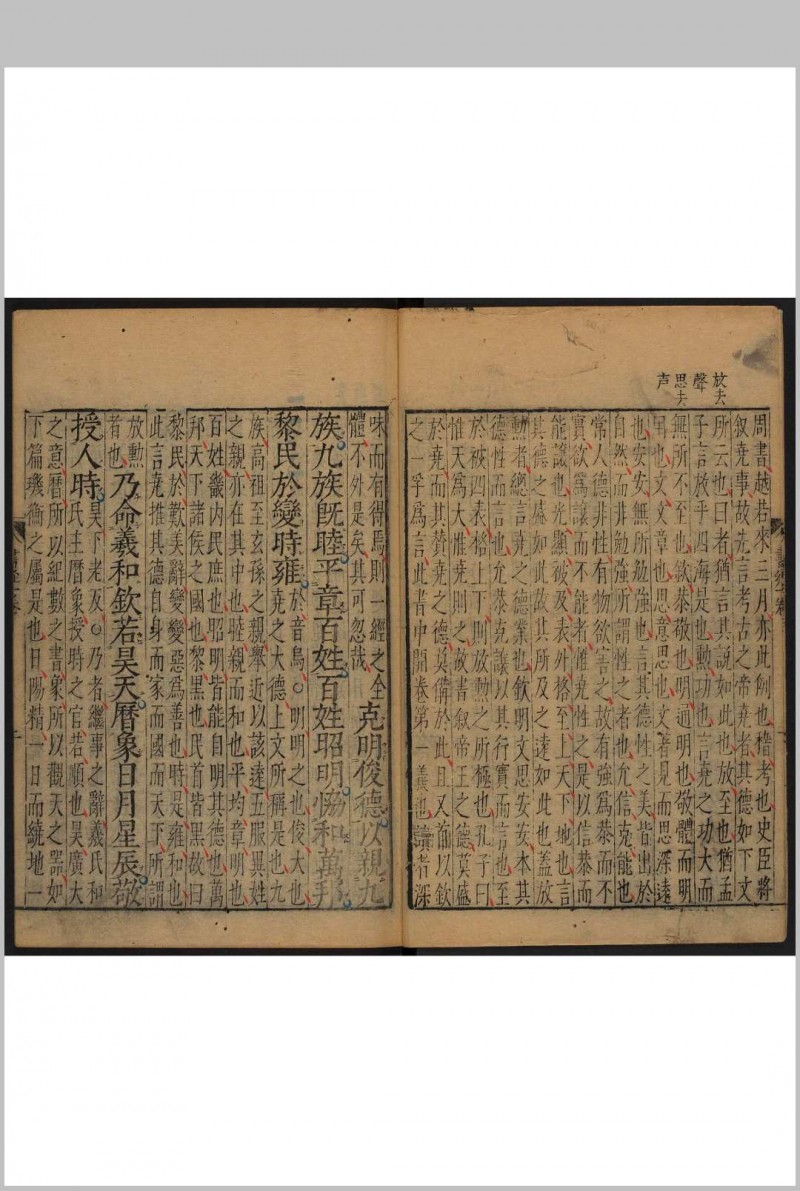 放去
聲
思去
声
周書越若來三月亦此例也稽考也史臣將
叙堯事故先言考古之帝堯者其德如下文
所云也曰者猶言其說如此也放至也猶孟
子言放乎四海是也勲功也言堯之功大而
無所不至也欽恭敬也明通明也敬體而明
用也文文章也思意思也文著見而思深遠
也安安無所勉強也言其德性之美皆出於
自然而非勉強所謂性之者也允信克能也
常人德非性有物欲害之故有強爲恭而不
實欲爲讓而不能者惟堯性之是以信恭而
能讓也光顯被及表外格至上天下地也言
其德之盛如此故其所及之遠如此也蓋放
勲者總言堯之德業也欽明文思安安本其
德性而言也允恭克讓以其行實而言也至
於被四表格上下則放勲之所極也孔子曰
惟天爲大惟堯則之故書叙帝王之德莫盛
於堯而其贊堯之德莫備於此且又首以欽
之一字爲言此書中開卷第一義也讀者深
味而有得焉則一經之全
體不外是矣其可忽哉
克明俊德以親九
族九族旣睦平章百姓百姓昭明協和萬邦
黎民於變時雍
於音烏○明明之也俊大也
堯之大德上文所稱是也九
族高祖至玄孫之親舉近以該遠五服異姓
之親亦在其中也睦親而和也平均章明也
百姓畿內民庶也昭明皆能自明其德也萬
邦天下諸侯之國也黎黑也民首皆黑故曰
黎民於歎美辭變變惡爲善也時是雍和也
此言堯推其德自身而家而國而天下所謂
放勲
者也
乃命羲和欽若昊天曆象日月星辰敬
授人時
昊下老反○乃者繼事之辭羲氏和
氏主曆象授時之官若順也昊廣大
之意曆所以紀數之書象所以觀天之器如
下篇璣衡之屬是也日陽精一日而繞地一